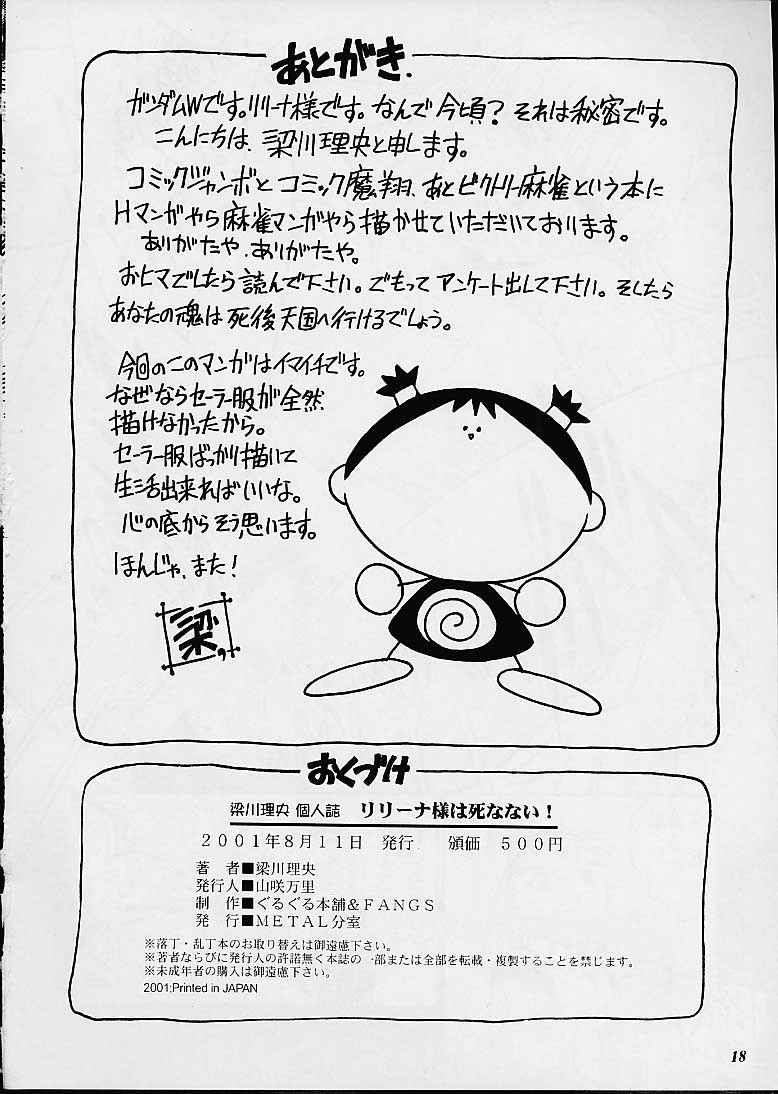 あとがき.
ガンダムWです。リリーナ様です。なんで今頃？それは秘密です。
こんにちは、梁川理央と申します。
コミックジャンボとコミック魔翔、あとビクトリー麻雀という本に
Hマンガやら麻雀マンガやら描かせていただいております。
ありがたや、ありがたや。
おヒマでしたら読んで下さい。でもってアンケート出して下さい。そしたら
あなたの魂は死後天国へ行けるでしょう。
今回のこのマンガはイマイチです。
なぜならセーラー服が全然
描けなかったから。
セーラー服ばっかり描いて
生活出来ればいいな。
心の底からそう思います。
ほんじゃ、また！
梁
おくづけ
梁川理央 個人誌 リリーナ様は死なない！
２００１年８月１１日 発行 頒価 ５００円
著 者■梁川理央
発行人■山咲万里
制 作■ぐるぐる本舗＆ＦＡＮＧＳ
発 行■ＭＥＴＡＬ分室
※落丁・乱丁本のお取り替えは御遠慮下さい。
※著者ならびに発行人の許諾無く本誌の一部または全部を転載・複製することを禁じます。
※未成年者の購入は御遠慮下さい。
2001;Printed in JAPAN
18